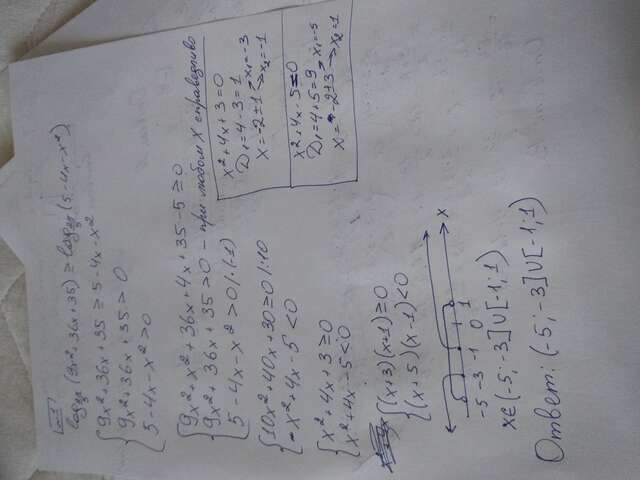 №1
log₂/₃(9x²+36x+35) ≥ log₂/₃(5-4x-x²)
9x²+36x+35 ≥ 5-4x-x²
9x²+36x+35 > 0
5-4x-x²>0
9x²+x²+36x+4x+35-5 ≥ 0
9x²+36x+35>0 – при любом x справедливо
5-4x-x²>0 /·(-1)
x²+4x+3=0
D₁=4-3=1
x=-2±1 x₁=-3
x₂=-1
10x²+40x+30≥0 /:10
x²+4x-5<0
x²+4x-5=0
D₁=4+5=9
x=-2±3 x₁=-5
x₂=1
x²+4x+3≥0
x²+4x-5<0
(x+3)(x+1)≥0
(x+5)(x-1)<0
x
-5 -3 -1 0 1
x∈(-5;-3]∪[-1;1)
Ответ: (-5;-3]∪[-1;1)